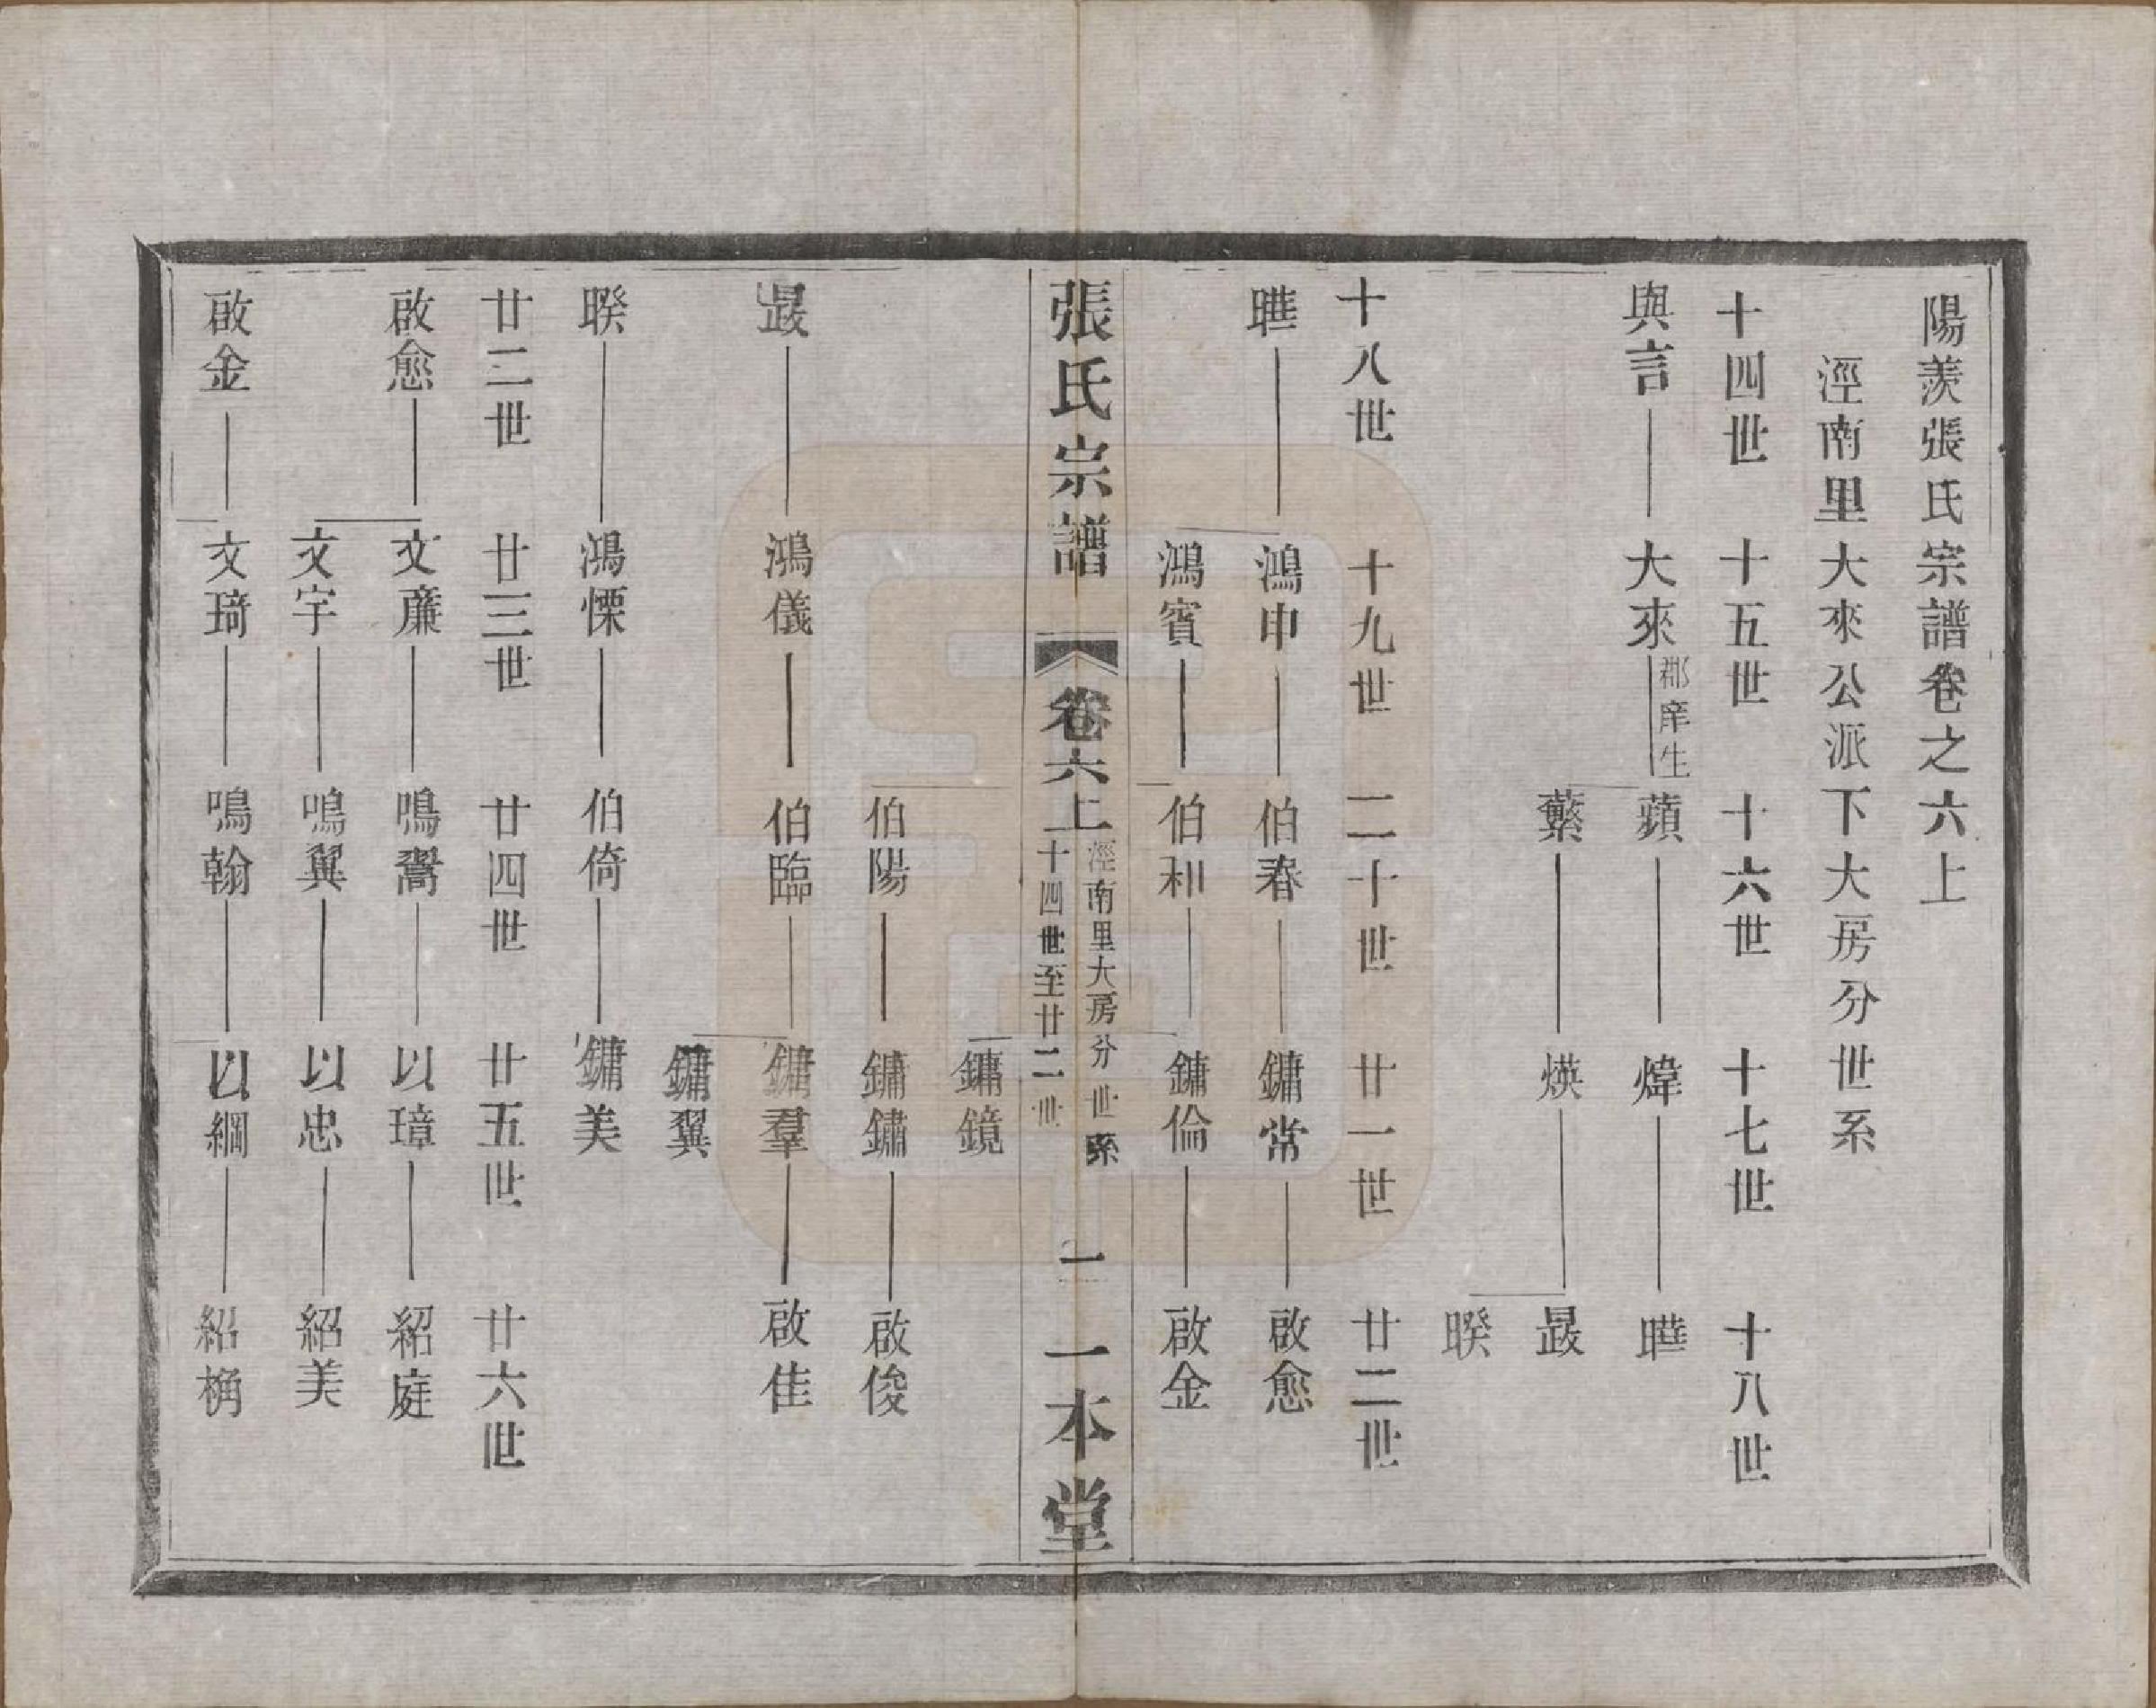 陽羨張氏宗譜卷之六上
涇南里大來公派下大房分世系
十四世 十五世 十六世 十七世 十八世
與言 大來 郡庠生 蘋 煒 曊
蘩 煐 晸
暌
十八世 十九世 二十世 廿一世 廿二世
鴻申 伯春 鏞常 啟愈
鴻賓 伯和 鏞倫 啟金
張氏宗譜 卷六上 涇南里大房分世系 十四世至廿二世 一 一本堂
鏞鏡
伯陽 鏞鏽 啟俊
晸 鴻儀 伯臨 鏞羣 啟佳
鏞翼
暌 鴻慄 伯倚 鏞美
廿二世 廿三世 廿四世 廿五世 廿六世
啟愈 文廉 鳴鶱 以璋 紹庭
文宇 鳴翼 以忠 紹美
啟金 文琦 鳴翰 以綱 紹桷